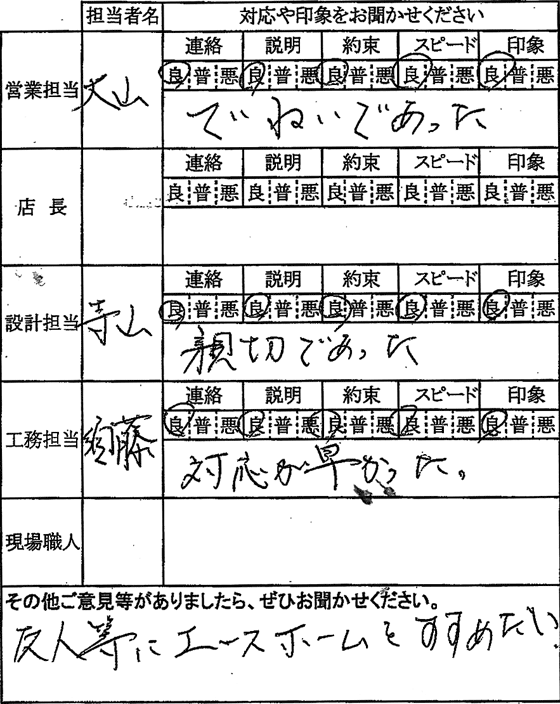 担当者名 対応や印象をお聞かせください
連絡 説明 約束 スピード 印象
営業担当 大山 良 普 悪 良 普 悪 良 普 悪 良 普 悪 良 普 悪
ていねいであった
連絡 説明 約束 スピード 印象
店 長 良 普 悪 良 普 悪 良 普 悪 良 普 悪 良 普 悪
連絡 説明 約束 スピード 印象
設計担当 寺山 良 普 悪 良 普 悪 良 普 悪 良 普 悪 良 普 悪
親切であった
連絡 説明 約束 スピード 印象
工務担当 須藤 良 普 悪 良 普 悪 良 普 悪 良 普 悪 良 普 悪
対応が早かった。
現場職人
その他ご意見等がありましたら、ぜひお聞かせください。
友人等にエースホームをすすめたい